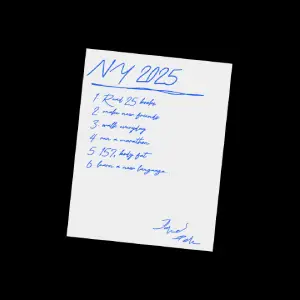 NY 2025
1 Read 25 books
2 make new friends
3 walk everyday
4 run a marathon
5 15% body fat
6 learn a new language